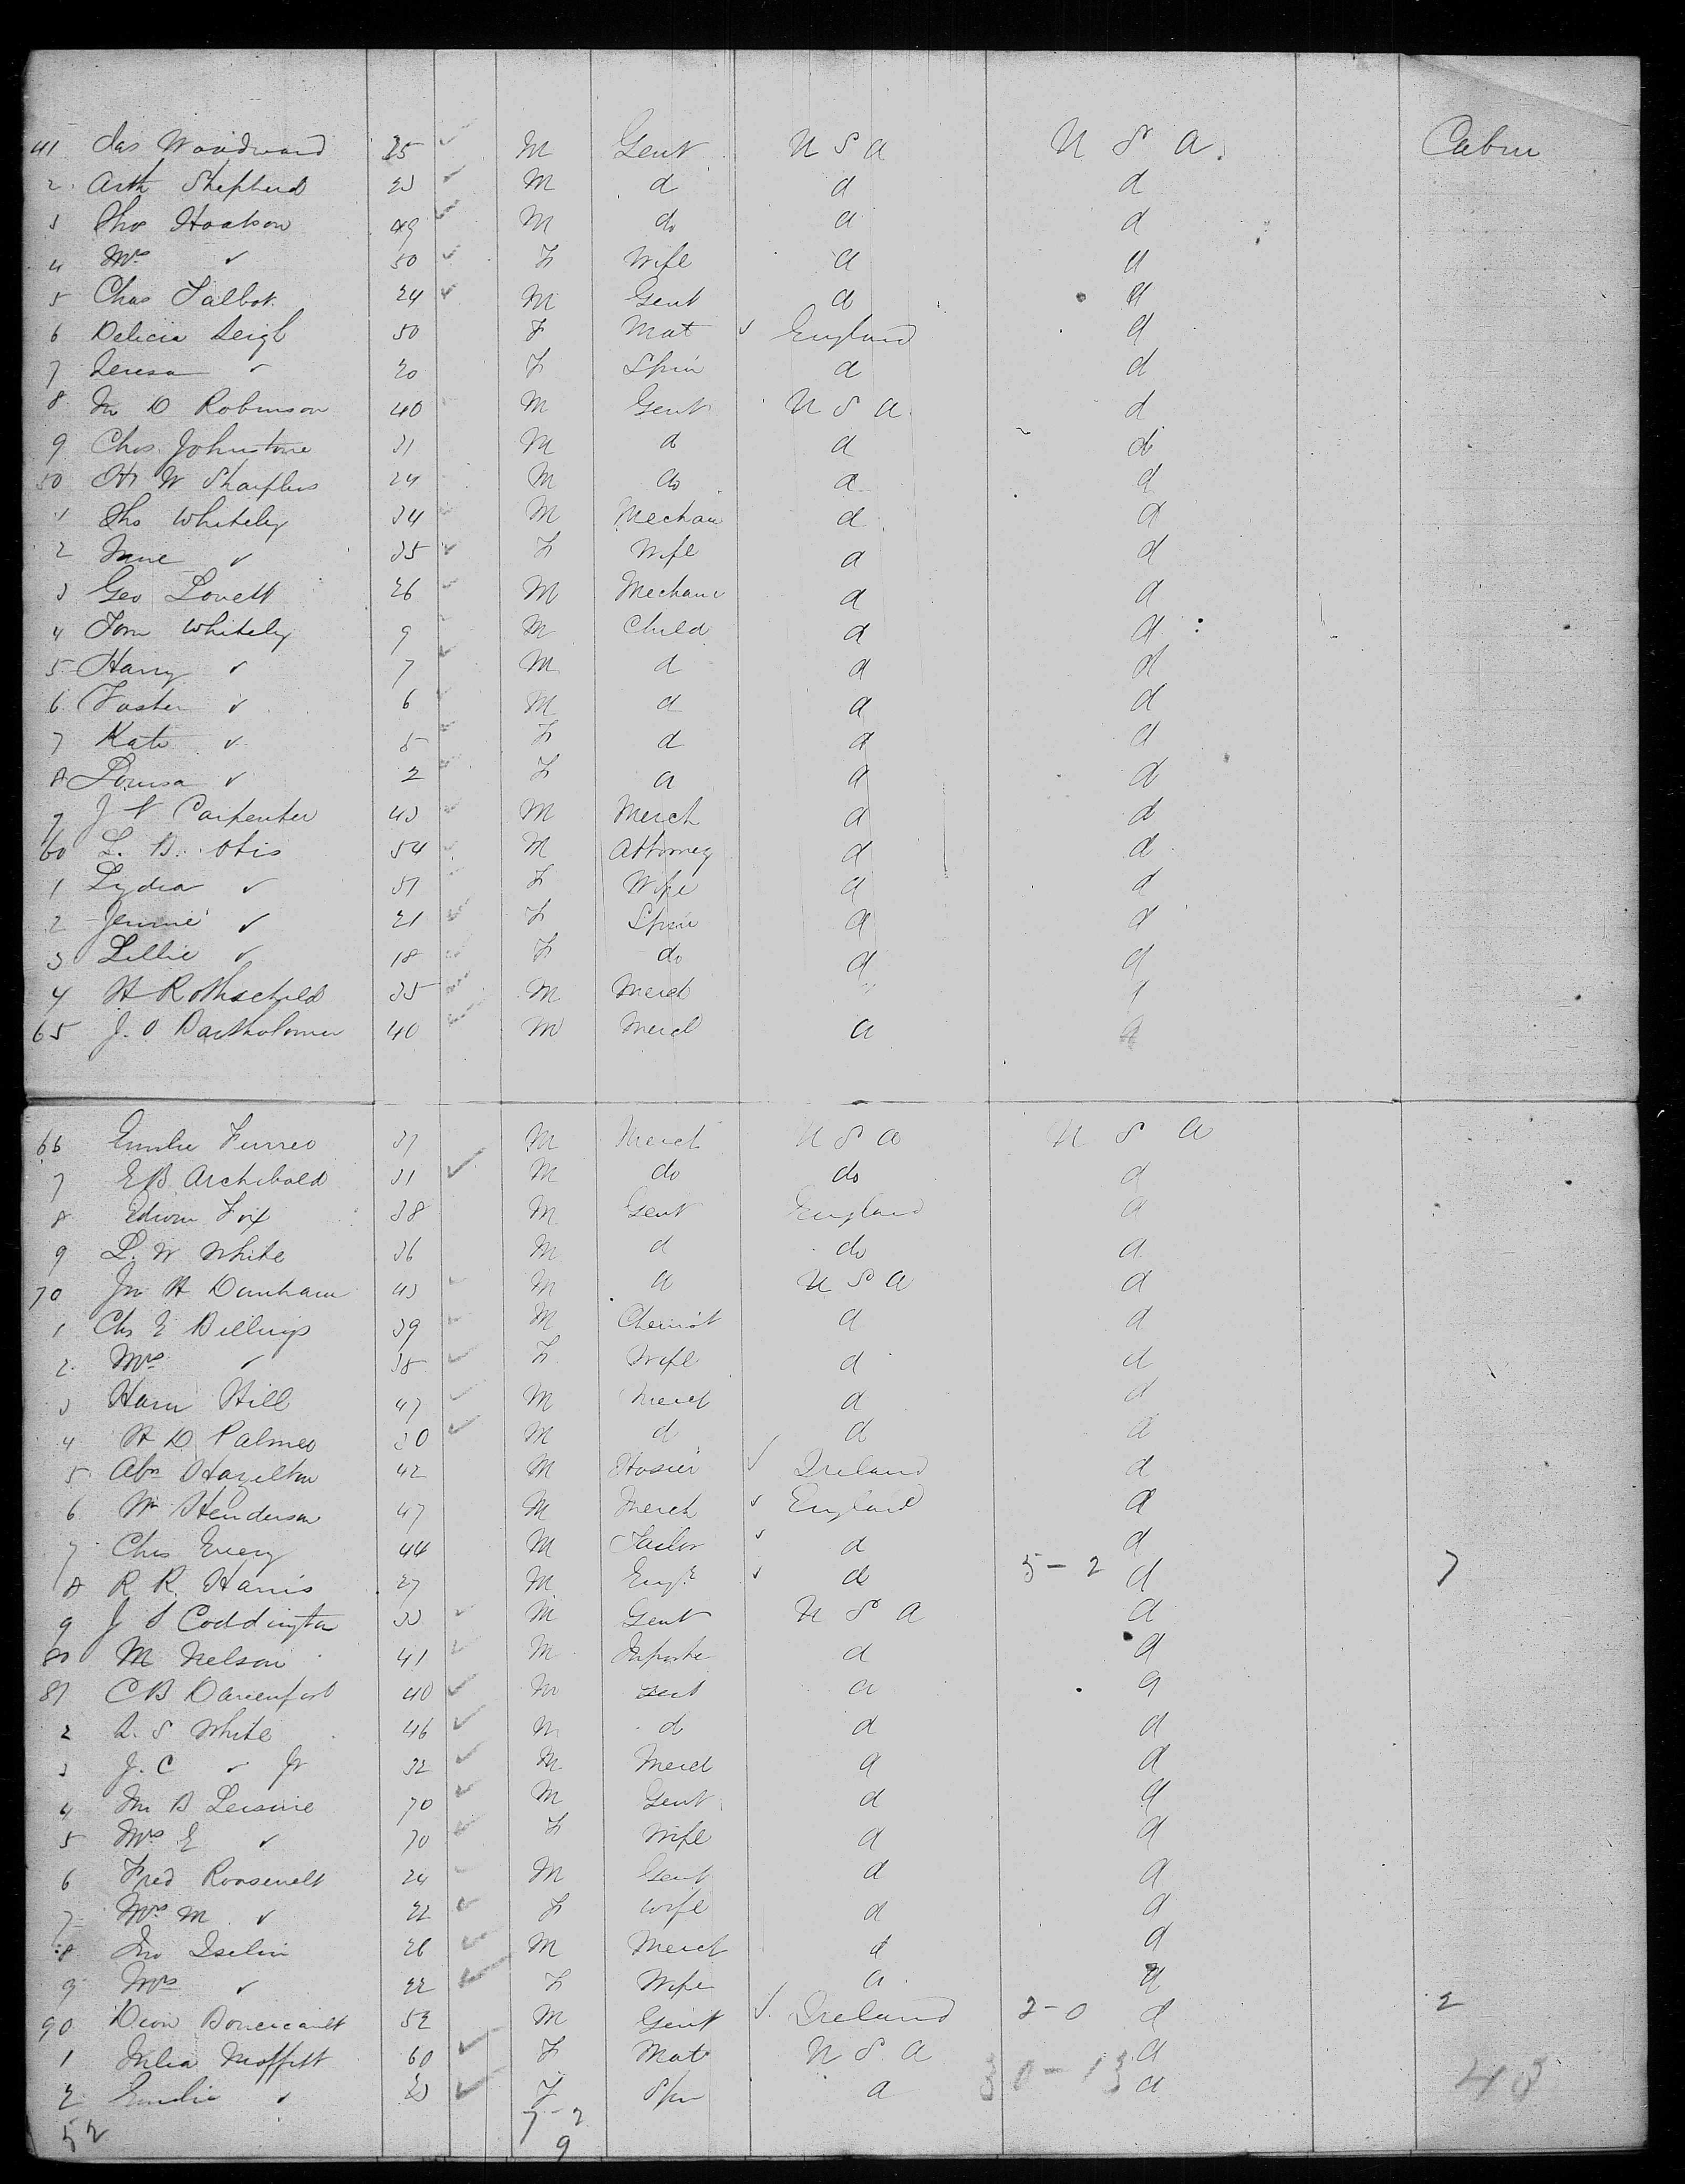 41 Jas Woodward 35 M Gent U S A U S A. Cabin
2 Arth Shepherd 23 M d d d
3 Tho Hoatson 49 M do d d
4 Mrs " 50 F Wife d d
5 Chas Talbot 24 M Gent do d
6 Delicia Leigh 50 F Mat England d
7 Teresa " 20 F Spin d d
8 Jn D Robinson 40 M Gent U S A d
9 Chas Johnstone 31 M d d do
50 H W Sharpless 24 M do d d
1 Tho Whiteley 34 M Mechan d d
2 Jane " 35 F Wife d d
3 Geo Lovett 26 M Mechanic d d
4 Tom Whiteley 9 M Child d d
5 Harry " 7 M d d d
6 Foster " 6 M d d d
7 Kate " 5 F d d d
8 Louisa " 2 F d d d
9 J Carpenter 43 M Merch d d
60 L. B. Otis 54 M Attorney d d
1 Lydia " 51 F Wife d d
2 Jennie " 21 F Spin d d
3 Lillie " 18 F do d d
4 H Rothschild 35 M Merch " d
65 J. O Bartholomew 40 M Merch d d
66 Emilie Furrer 31 M Merch U S A U S A
7 E B Archibald 31 M do do d
8 Edwin Fox 38 M Gent England d
9 L. W White 36 M d do d
70 Jn H Dunham 43 M d U S A d
1 Chs E Billings 39 M Chemist d d
2 Mrs " 38 F Wife d d
3 Ham Hill 47 M Merch d d
4 H D Palmer 30 M d d d
5 Abm Hazelton 42 M Hosier Ireland d
6 Wm Henderson 47 M Merch England d
7 Chs Every 44 M Tailor d d
8 R R. Harris 27 M Engr do 5-2 d 7
9 J S Coddington 33 M Gent U S A d
80 M Nelson 41 M Importe d d
81 C B Davenport 40 M Gent d d
2 A. S White 46 M d d d
3 J. C " Jr 32 M Merch d d
4 Jn B 70 M Gent d d
5 Mrs E " 70 F Wife d d
6 Fred Roosevelt 24 M Gent d d
7 Mrs M " 22 F Wife d d
8 Jno Iselin 26 M Merch d d
9 Mrs " 22 F Wife d d
90 Dion Boucicault 52 M Gent Ireland 2-0 d 2
1 Julia Moffitt 60 F Mat U S A d
2 Emilie " 23 F Spn d 30-13 d 48
52 7-2
9